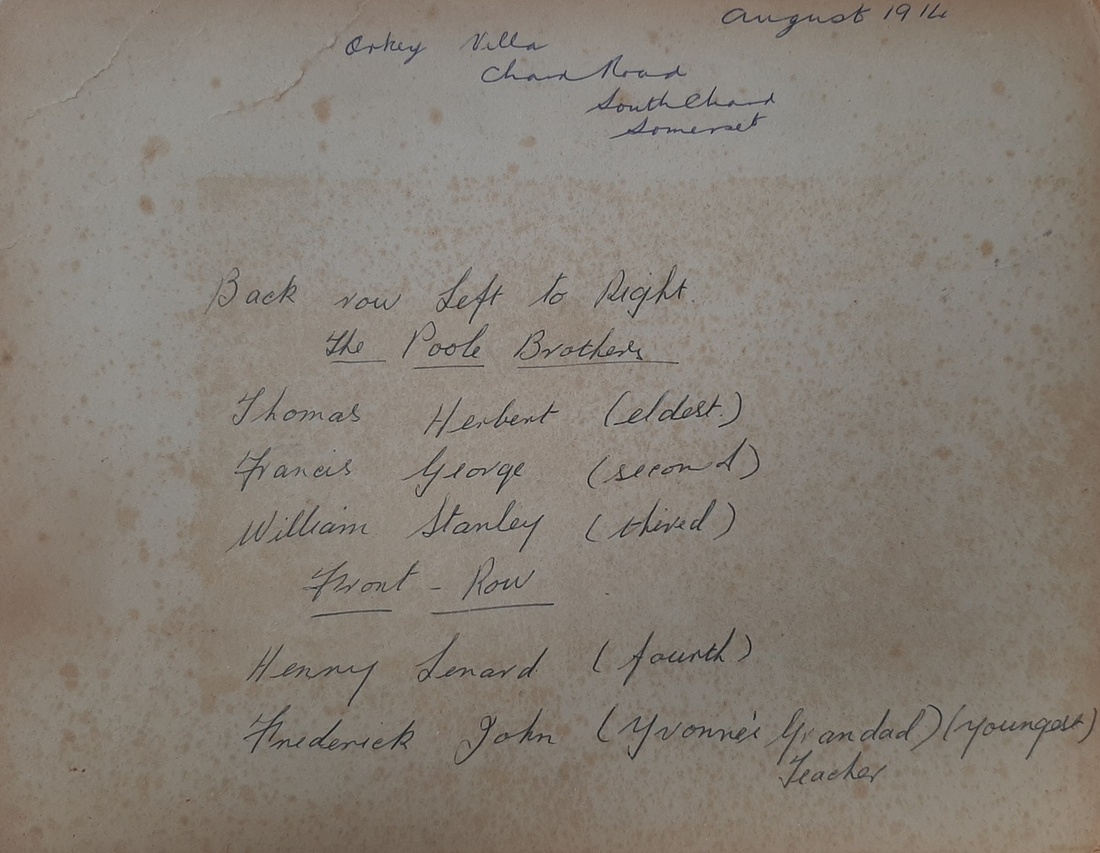 August 1914
Orkey Villa
Chard Road
South Chard
Somerset
Back row Left to Right.
The Poole Brothers
Thomas Herbert (eldest.)
Francis George (second)
William Stanley (thired)
Front - Row
Henry Lenard (fourth)
Frederick John (Yvonne's Grandad) (youngest)
Teacher